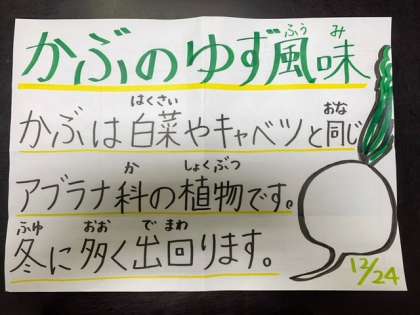 かぶのゆず風味
ふうみ
はくさい
おな
かぶは白菜やキャベツと同じ
か
しょくぶつ
アブラナ科の植物です。
ふゆ
おお
で
まわ
冬に多く出回ります。
12/24